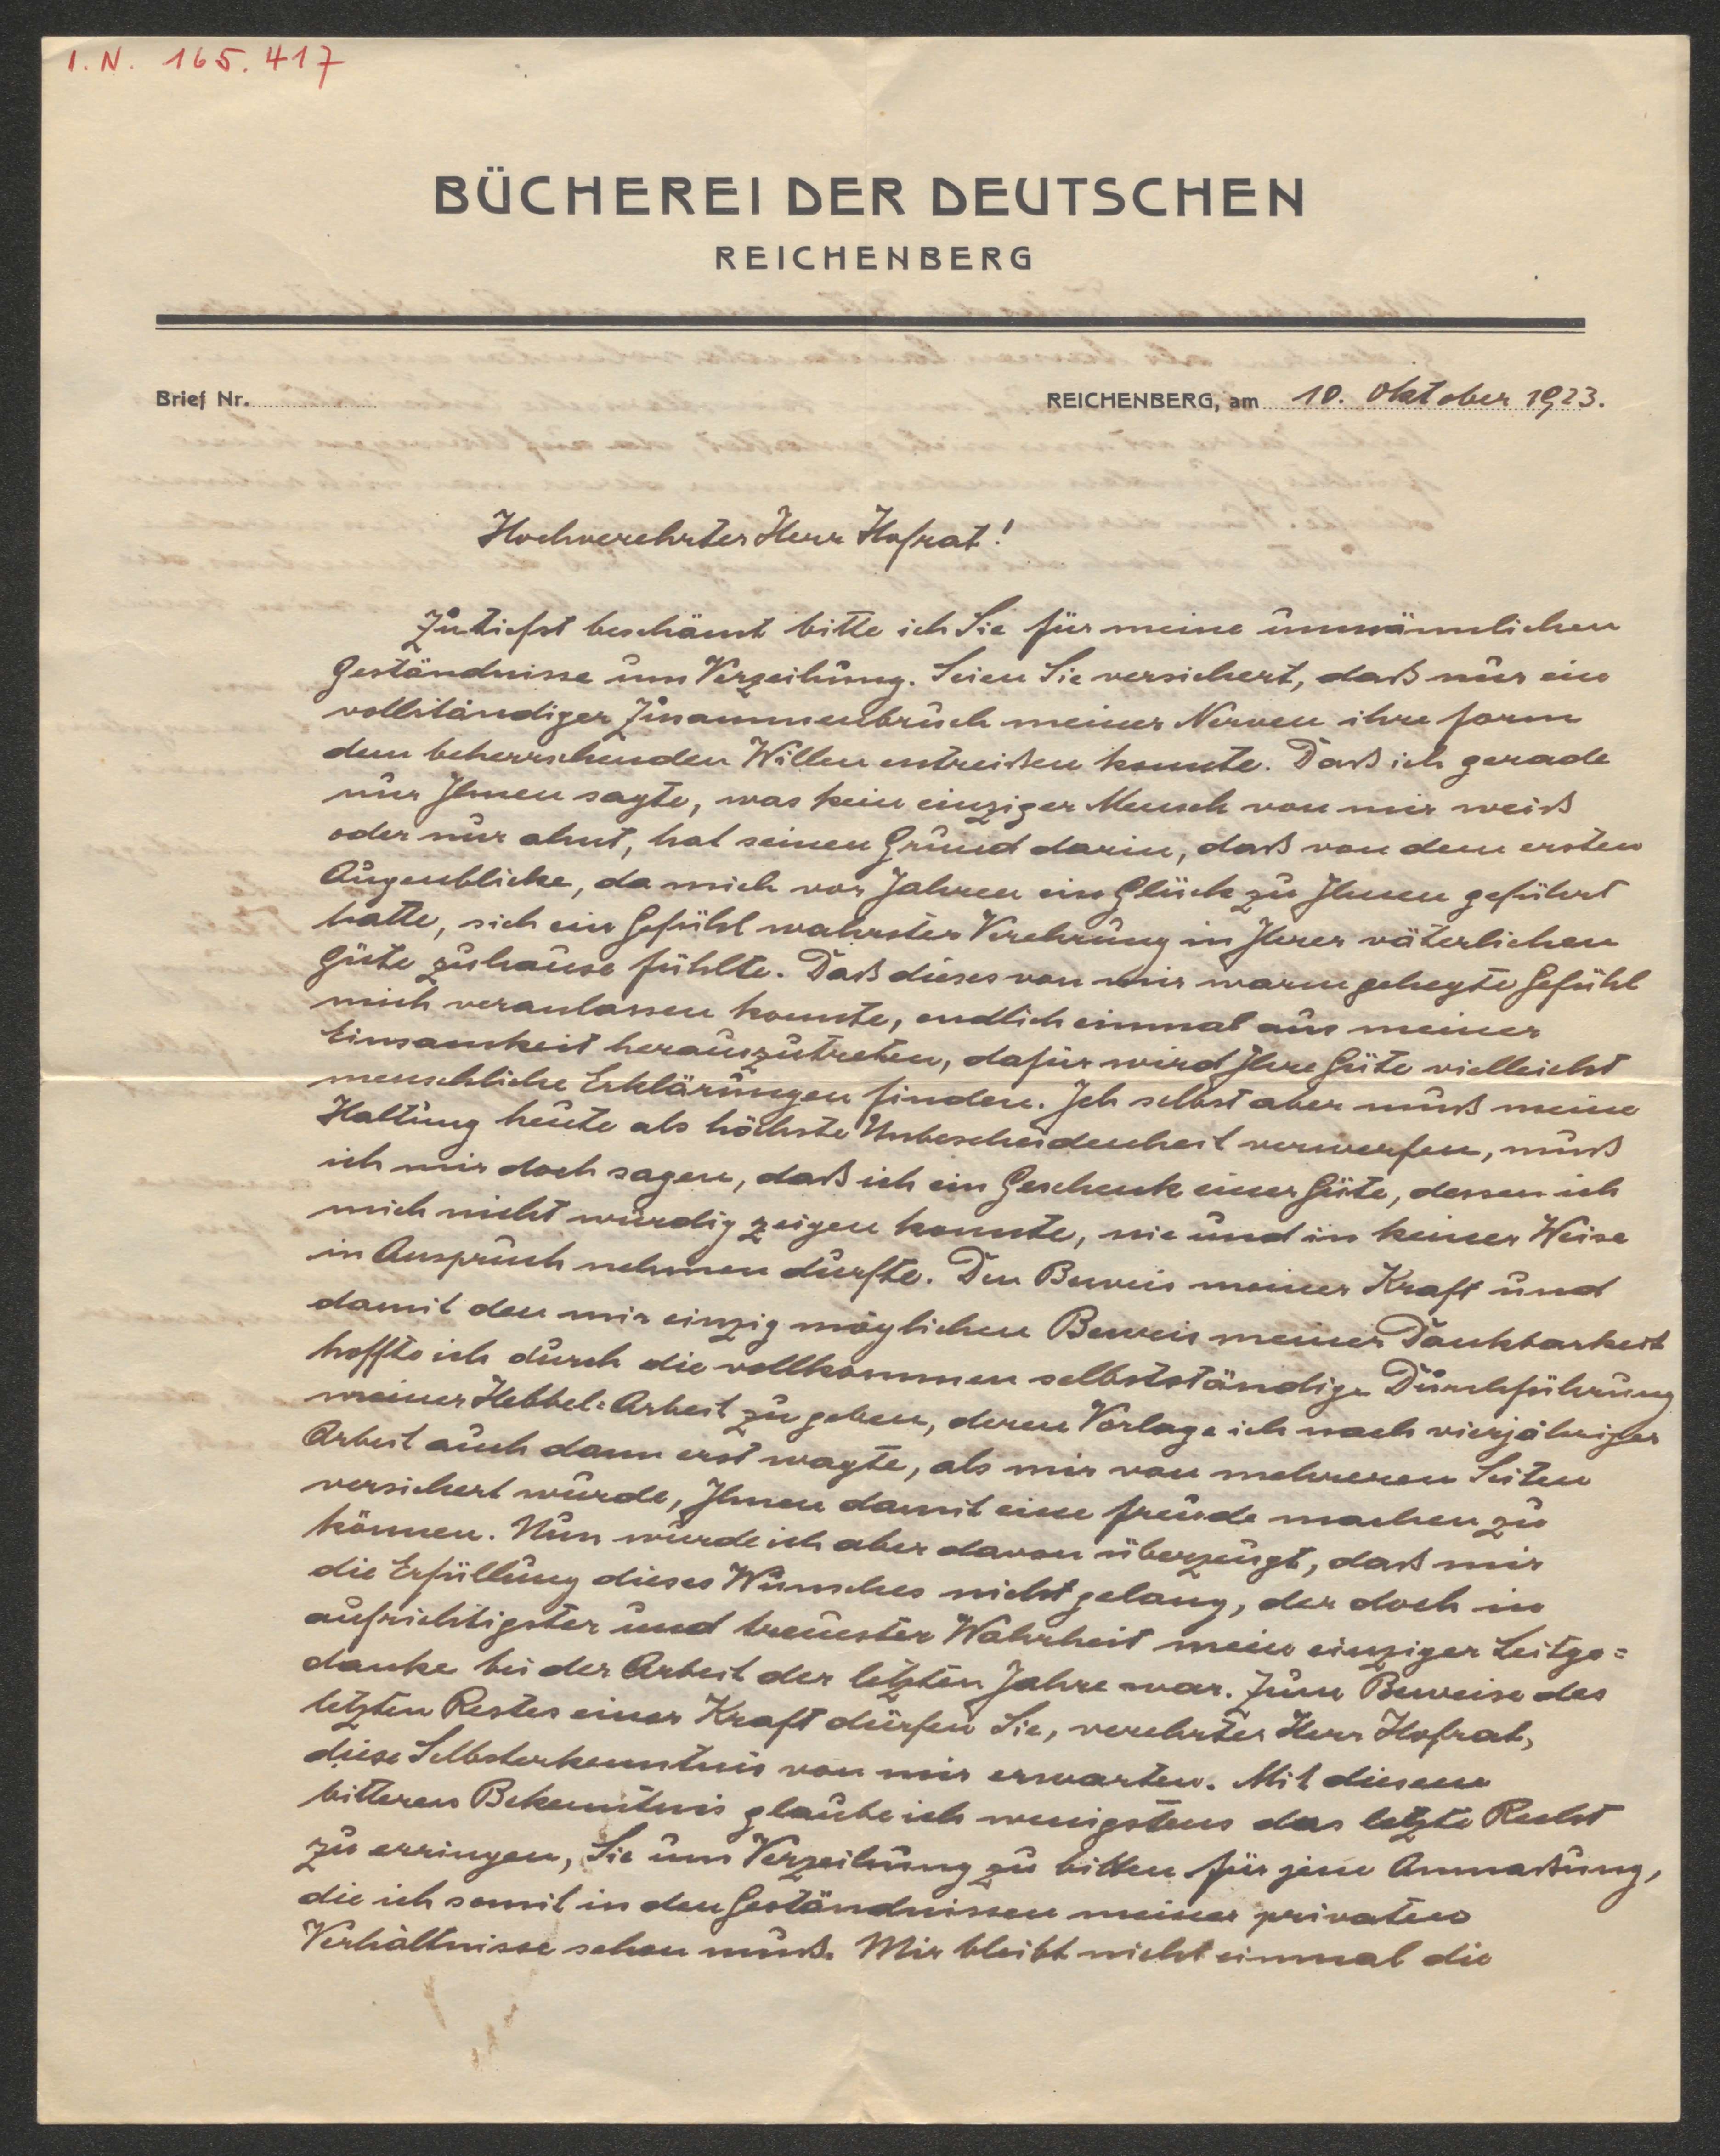 I. N. 165.417
BÜCHEREI DER DEUTSCHEN
REICHENBERG
Brief Nr.
REICHENBERG, am 10. Oktober 1923.
Hochverehrter Herr Hofrat!
Zutiefst beschämt bitte ich Sie für meine unmännlichen
Geständnisse um Verzeihung. Seien Sie versichert, daß nur ein
vollständiger Zusammenbruch meiner Nerven ihre Form
dem beherrschenden Willen entreißen konnte. Daß ich gerade
nur Ihnen sagte, was kein einziger Mensch von mir weiß
oder nur ahnt, hat seinen Grund darin, daß von dem ersten
Augenblicke, da mich vor Jahren ein Glück zu Ihnen geführt
hatte, sich ein Gefühl wahrster Verehrung in Ihrer väterlichen
Güte zuhause fühlte. Daß dieses von mir warm gehegte Gefühl
mich veranlassen konnte, endlich einmal aus meiner
Einsamkeit herauszutreten, dafür wird Ihre Güte vielleicht
menschliche Erklärungen finden. Ich selbst aber muß meine
Haltung heute als höchste Unbescheidenheit verwerfen, muß
ich mir doch sagen, daß ich ein Geschenk einer Güte, dessen ich
mich nicht würdig zeigen konnte, nie und in keiner Weise
in Anspruch nehmen durfte. Den Beweis meiner Kraft und
damit den mir einzig möglichen Beweis meiner Dankbarkeit
hoffte ich durch die vollkommen selbstständige Durchführung
meiner Hebbel-Arbeit zu geben, deren Vorlage ich nach vierjähriger
Arbeit auch dann erst wagte, als mir von mehreren Seiten
versichert wurde, Ihnen damit eine Freude machen zu
können. Nun wurde ich aber davon überzeugt, daß mir
die Erfüllung dieses Wunsches nicht gelang, der doch in
aufrichtigster und treuester Wahrheit mein einziger Leitge=
danke bei der Arbeit der letzten Jahre war. Zum Beweise des
letzten Restes einer Kraft dürfen Sie, verehrter Herr Hofrat,
diese Selbsterkenntnis von mir erwarten. Mit diesem
bitteren Bekenntnis glaube ich wenigstens das letzte Recht
zu erringen, Sie um Verzeihung zu bitten für jene Anmaßung,
die ich somit in den Geständnissen meiner privaten
Verhältnisse sehen muß. Mir bleibt nicht einmal die